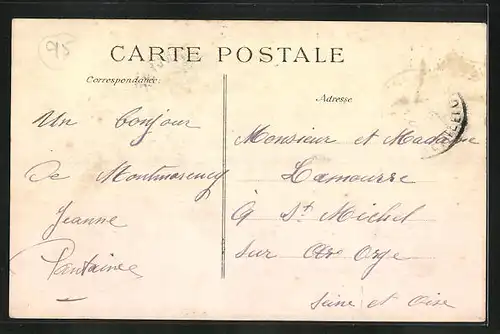 95
CARTE POSTALE
Correspondance:
Adresse
Un bonjour
De Montmorency
Jeanne
Monsieur et Madame
Lamourre
à St Michel
sur Orge
Seine et Oise